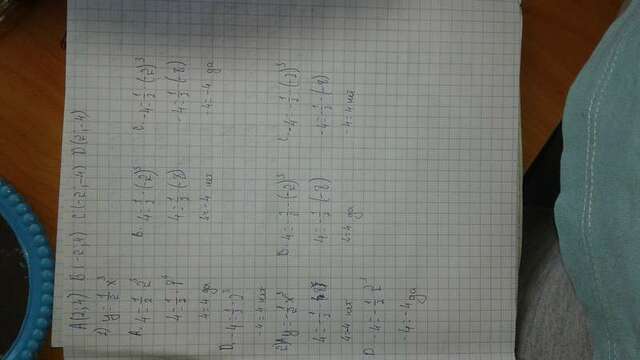 A(2;4) B(-2;4) C(-2;-4) D(2;-4)
1) y=\frac{1}{2}x³
A. 4=\frac{1}{2}·2³
4=\frac{1}{2}·8
4=4 да
B. 4=\frac{1}{2}·(-2)³
4=\frac{1}{2}·(-8)
4=-4 нет
C. -4=\frac{1}{2}·(-2)³
-4=\frac{1}{2}·(-8)
-4=-4 да
D. -4=\frac{1}{2}·2³
-4=4 нет
2) y=-\frac{1}{2}x³
4=-\frac{1}{2}·8
4=-4 нет
B. 4=-\frac{1}{2}·(-2)³
4=-\frac{1}{2}·(-8)
4=4 да
C. -4=-\frac{1}{2}·(-2)³
-4=-\frac{1}{2}·(-8)
-4=4 нет
D -4=-\frac{1}{2}·2³
-4=-4 да